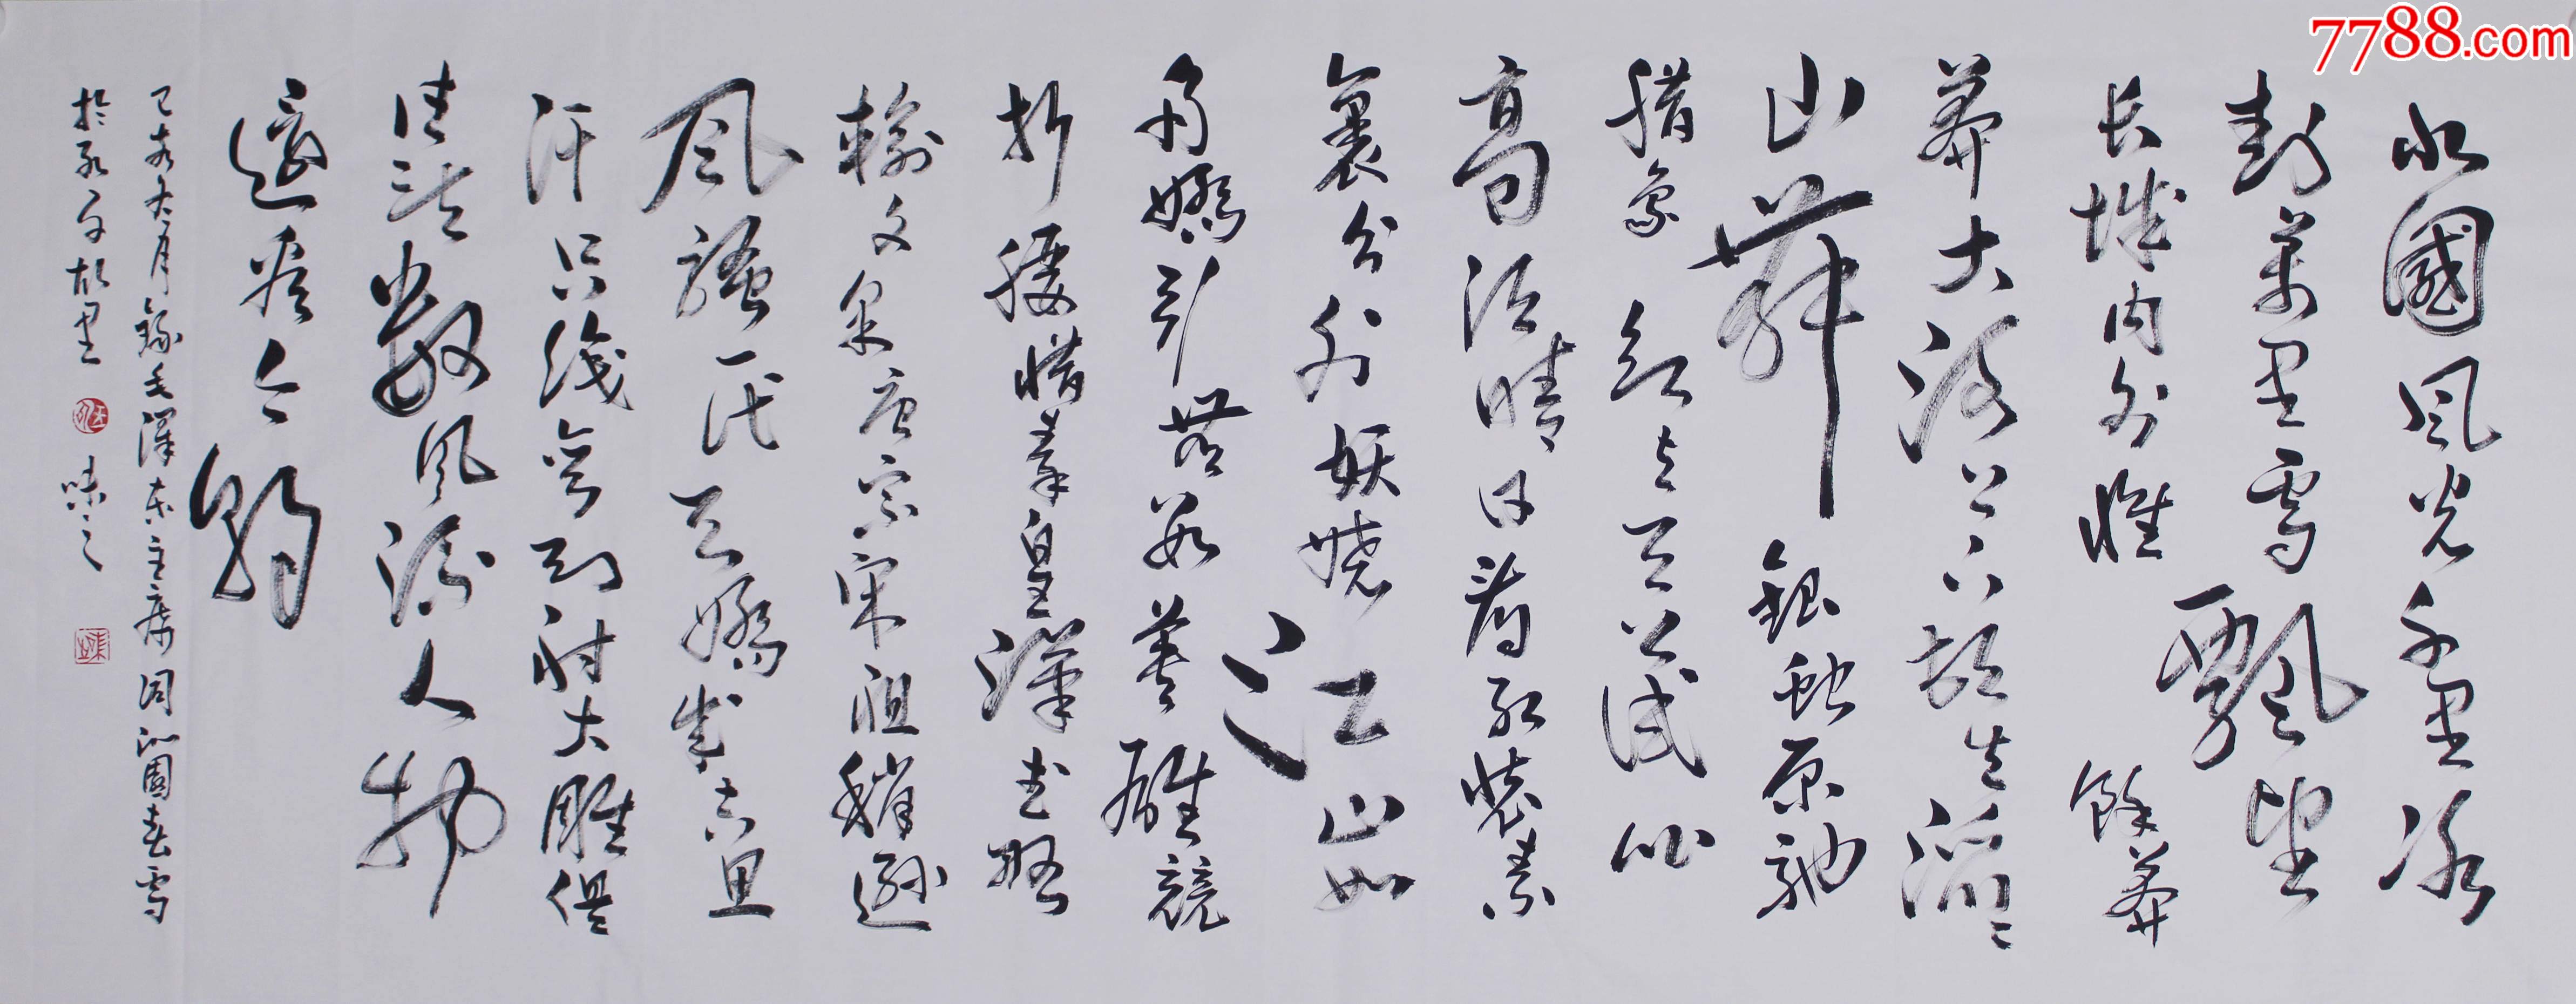 北國風光千里冰
封萬里雪飄望
長城內外惟餘莽
莽大河上下頓失滔滔
山舞銀蛇原馳
腊象欲與天公試比
高須晴日看紅裝素
裹分外妖嬈江山如
多嬌引無數英雄競
折腰惜秦皇漢武略
輸文采唐宗宋祖稍遜
風騷一代天嬌成吉思
汗只識彎弓射大雕俱
往矣數風流人物
還看今朝
己亥冬月錄毛澤東主席詞沁園春雪
於孔子故里 味之
7788.com